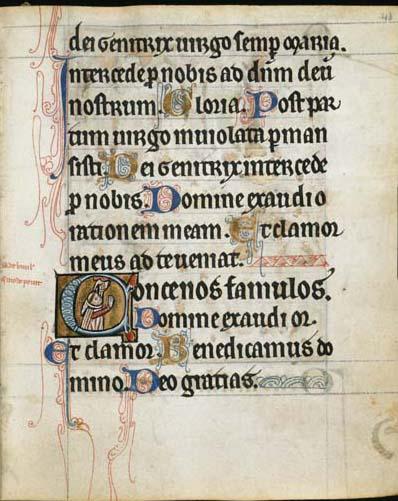 dei genitrix uirgo semp maria.
Intercede p nobis ad dnm deu
nostrum Gloria. Post par
tum uirgo inuiolata pman
sisti Dei genitrix intercede
p nobis. Domine exaudi o
rationem meam. Et clamor
meus ad te ueniat.
Concenos famulos.
Domine exaudi or.
Et clamor. Benedicamus do
mino. Deo gratias.